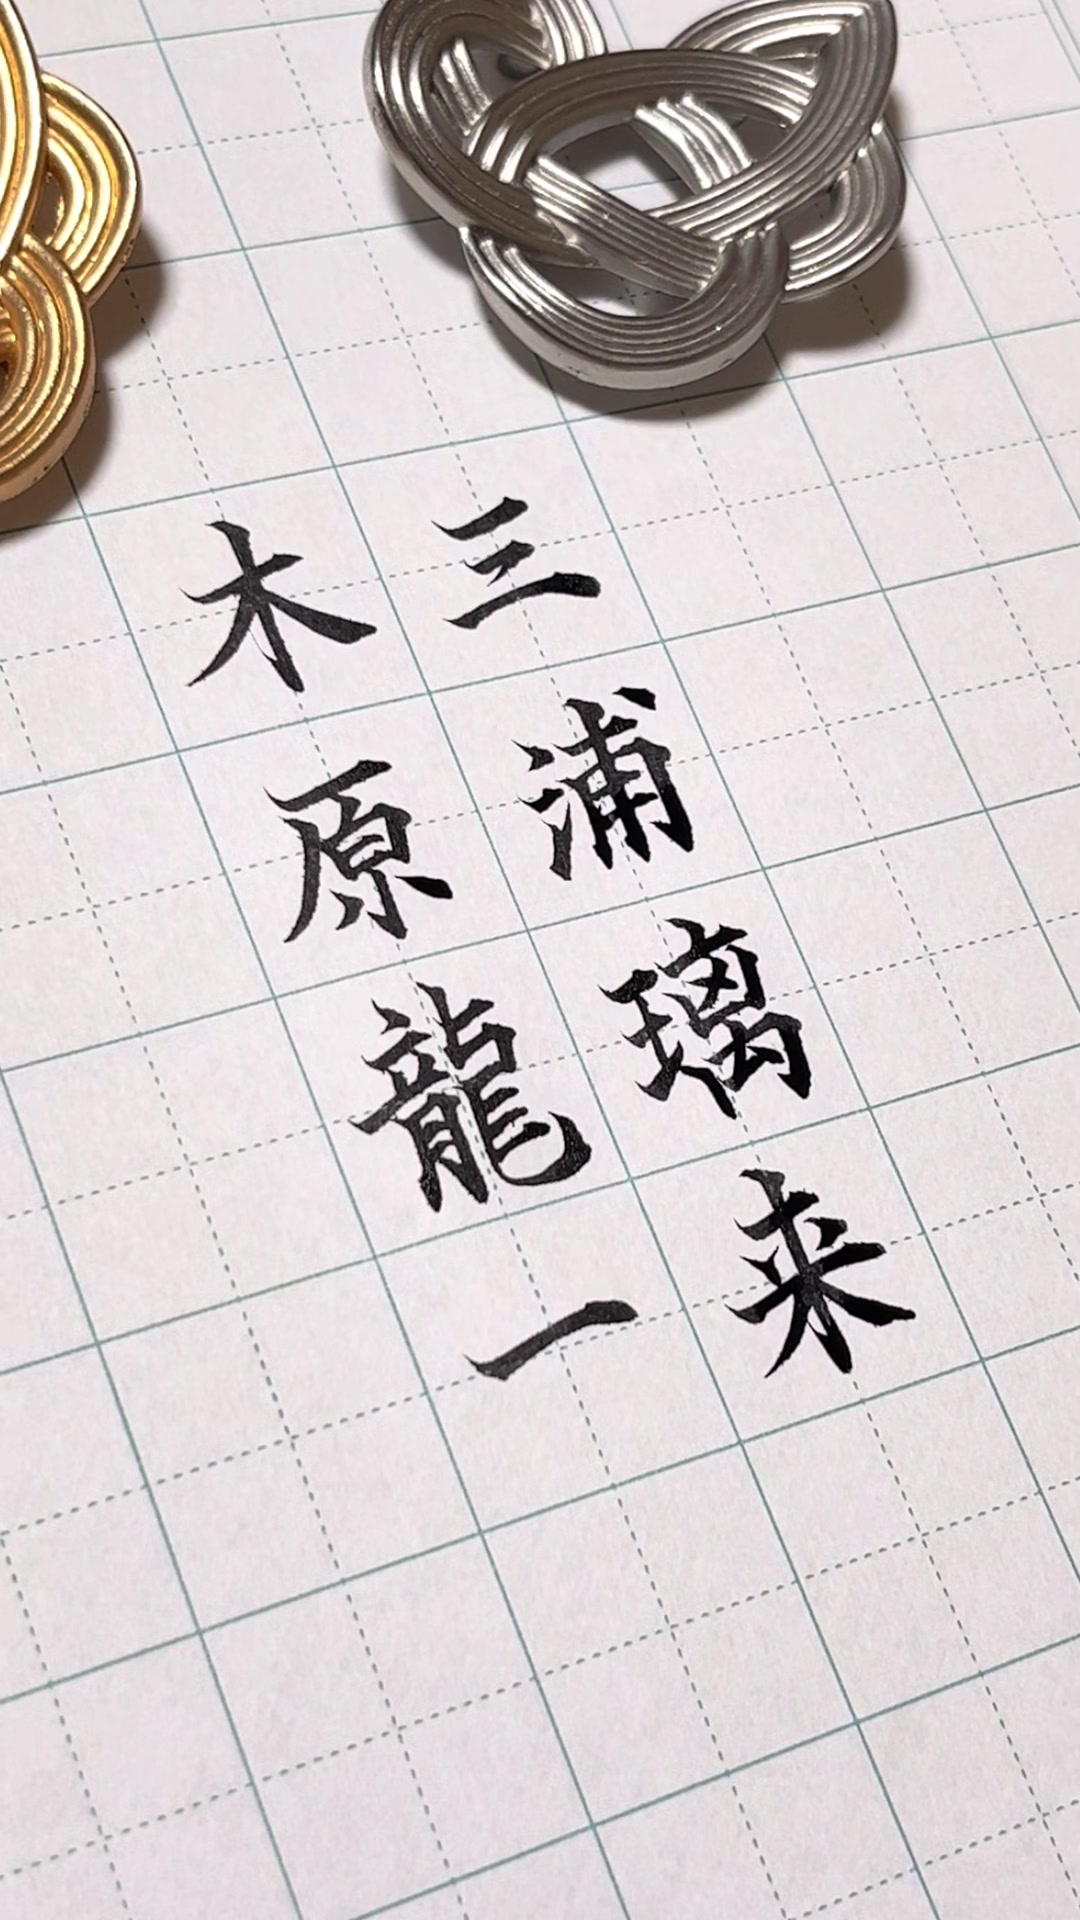 三浦璃来
木原龍一